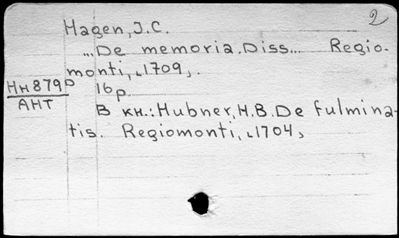 2
Hagen, J.C.
... De memoria. Diss... Regio-
monti, 1709,.
Нн879р 16p.
АНТ
В кн.: Hubner, H.B. De fulmina-
tis. Regiomonti, 1704,